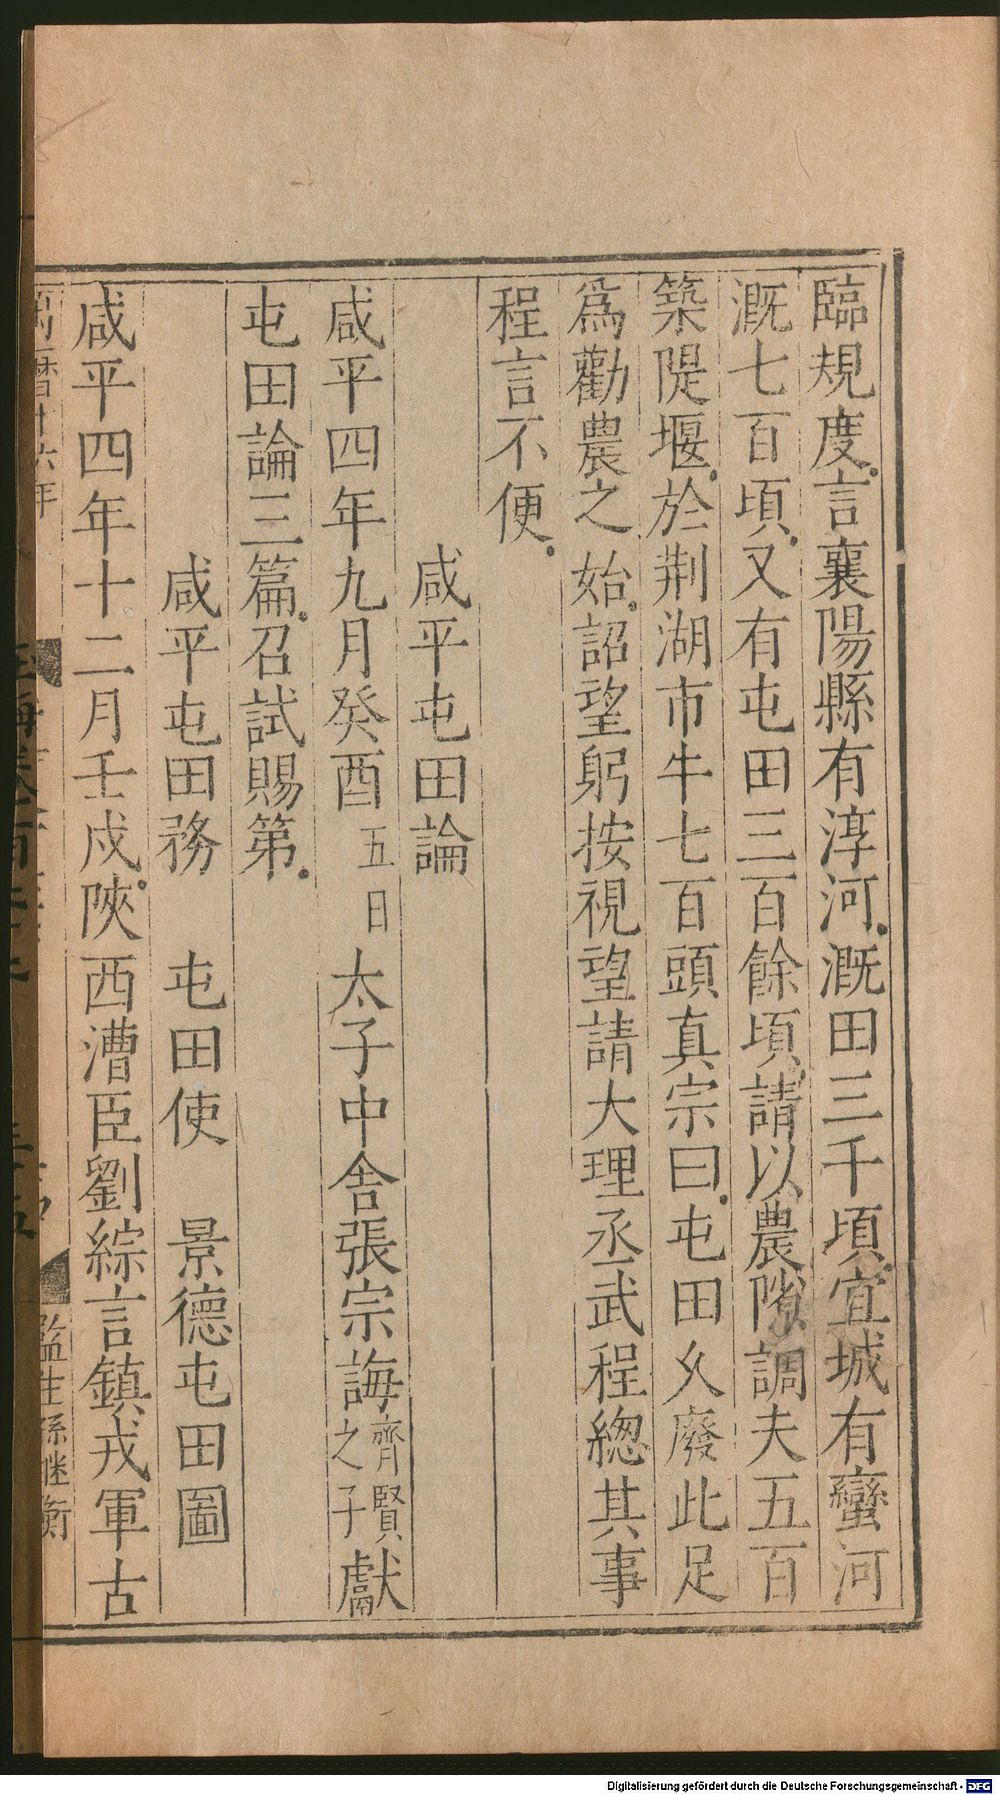 臨規度言襄陽縣有淳河漑田三千頃宜城有蠻河
漑七百頃又有屯田三百餘頃請以農隙調夫五百
築隄堰於荆湖市牛七百頭真宗曰屯田久廢此足
爲勸農之始詔望躬按視望請大理丞武程總其事
程言不便
咸平屯田論
咸平四年九月癸酉五日太子中舍張宗誨齊賢之子獻
屯田論三篇召試賜第
咸平屯田務 屯田使 景德屯田圖
咸平四年十二月壬戌陝西漕臣劉綜言鎮戎軍古
萬曆十六年
監生孫繼衡
Digitalisierung gefördert durch die Deutsche Forschungsgemeinschaft - DFG